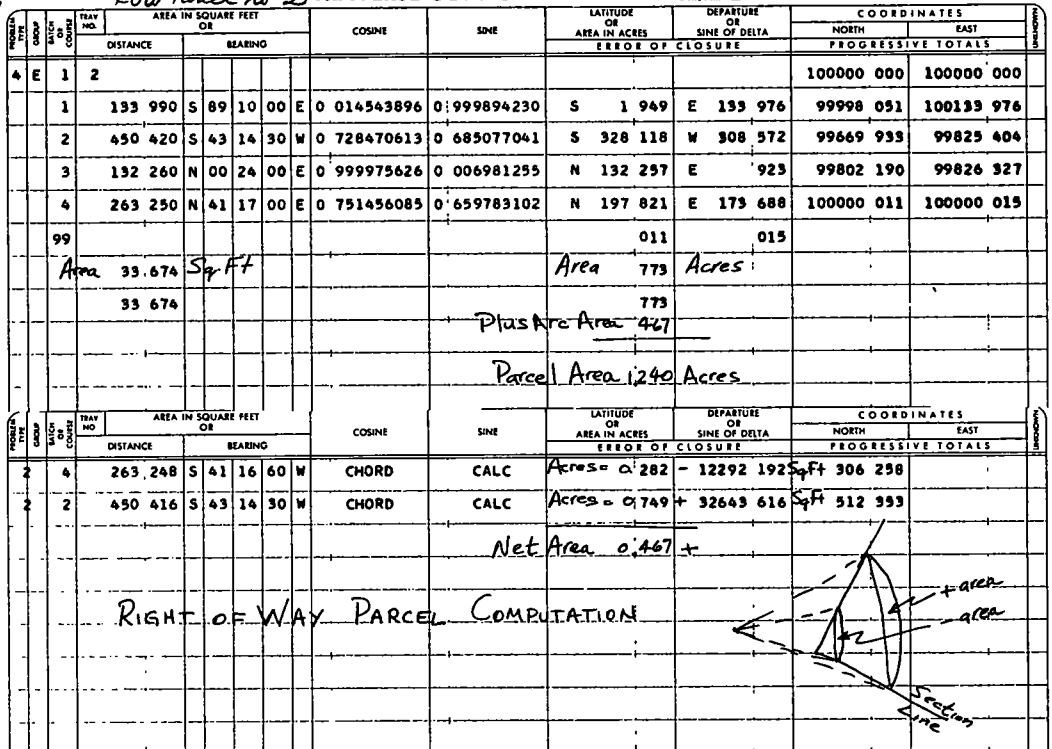 PROBLEM TYPE GROUP BATCH OR COURSE TRAV NO. AREA IN SQUARE FEET OR DISTANCE BEARING COSINE SINE LATITUDE OR AREA IN ACRES DEPARTURE OR SINE OF DELTA ERROR OF CLOSURE COORDINATES NORTH EAST PROGRESSIVE TOTALS UNKNOWN
4 E 1 2 100000 000 100000 000
1 133 990 S 89 10 00 E 0 014543896 0 999894230 S 1 949 E 133 976 99998 051 100133 976
2 450 420 S 43 14 30 W 0 728470613 0 685077041 S 328 118 W 308 572 99669 933 99825 404
3 132 260 N 00 24 00 E 0 999975626 0 006981255 N 132 257 E 923 99802 190 99826 327
4 263 250 N 41 17 00 E 0 751456085 0 659783102 N 197 821 E 173 688 100000 011 100000 015
99 011 015
Area 33.674 Sq Ft Area 773 Acres
33 674 773
Plus Arc Area 467
Parcel Area 1,240 Acres
PROBLEM TYPE GROUP BATCH OR COURSE TRAV NO AREA IN SQUARE FEET OR DISTANCE BEARING COSINE SINE LATITUDE OR AREA IN ACRES DEPARTURE OR SINE OF DELTA ERROR OF CLOSURE COORDINATES NORTH EAST PROGRESSIVE TOTALS UNKNOWN
2 4 263 248 S 41 16 60 W CHORD CALC Acres = 0.282 - 12292 192 Sq Ft 306 258
2 2 450 416 S 43 14 30 W CHORD CALC Acres = 0,749 + 32643 616 Sq Ft 512 393
Net Area 0.467 +
RIGHT OF WAY PARCEL COMPUTATION
+ area
- area
Section
Line